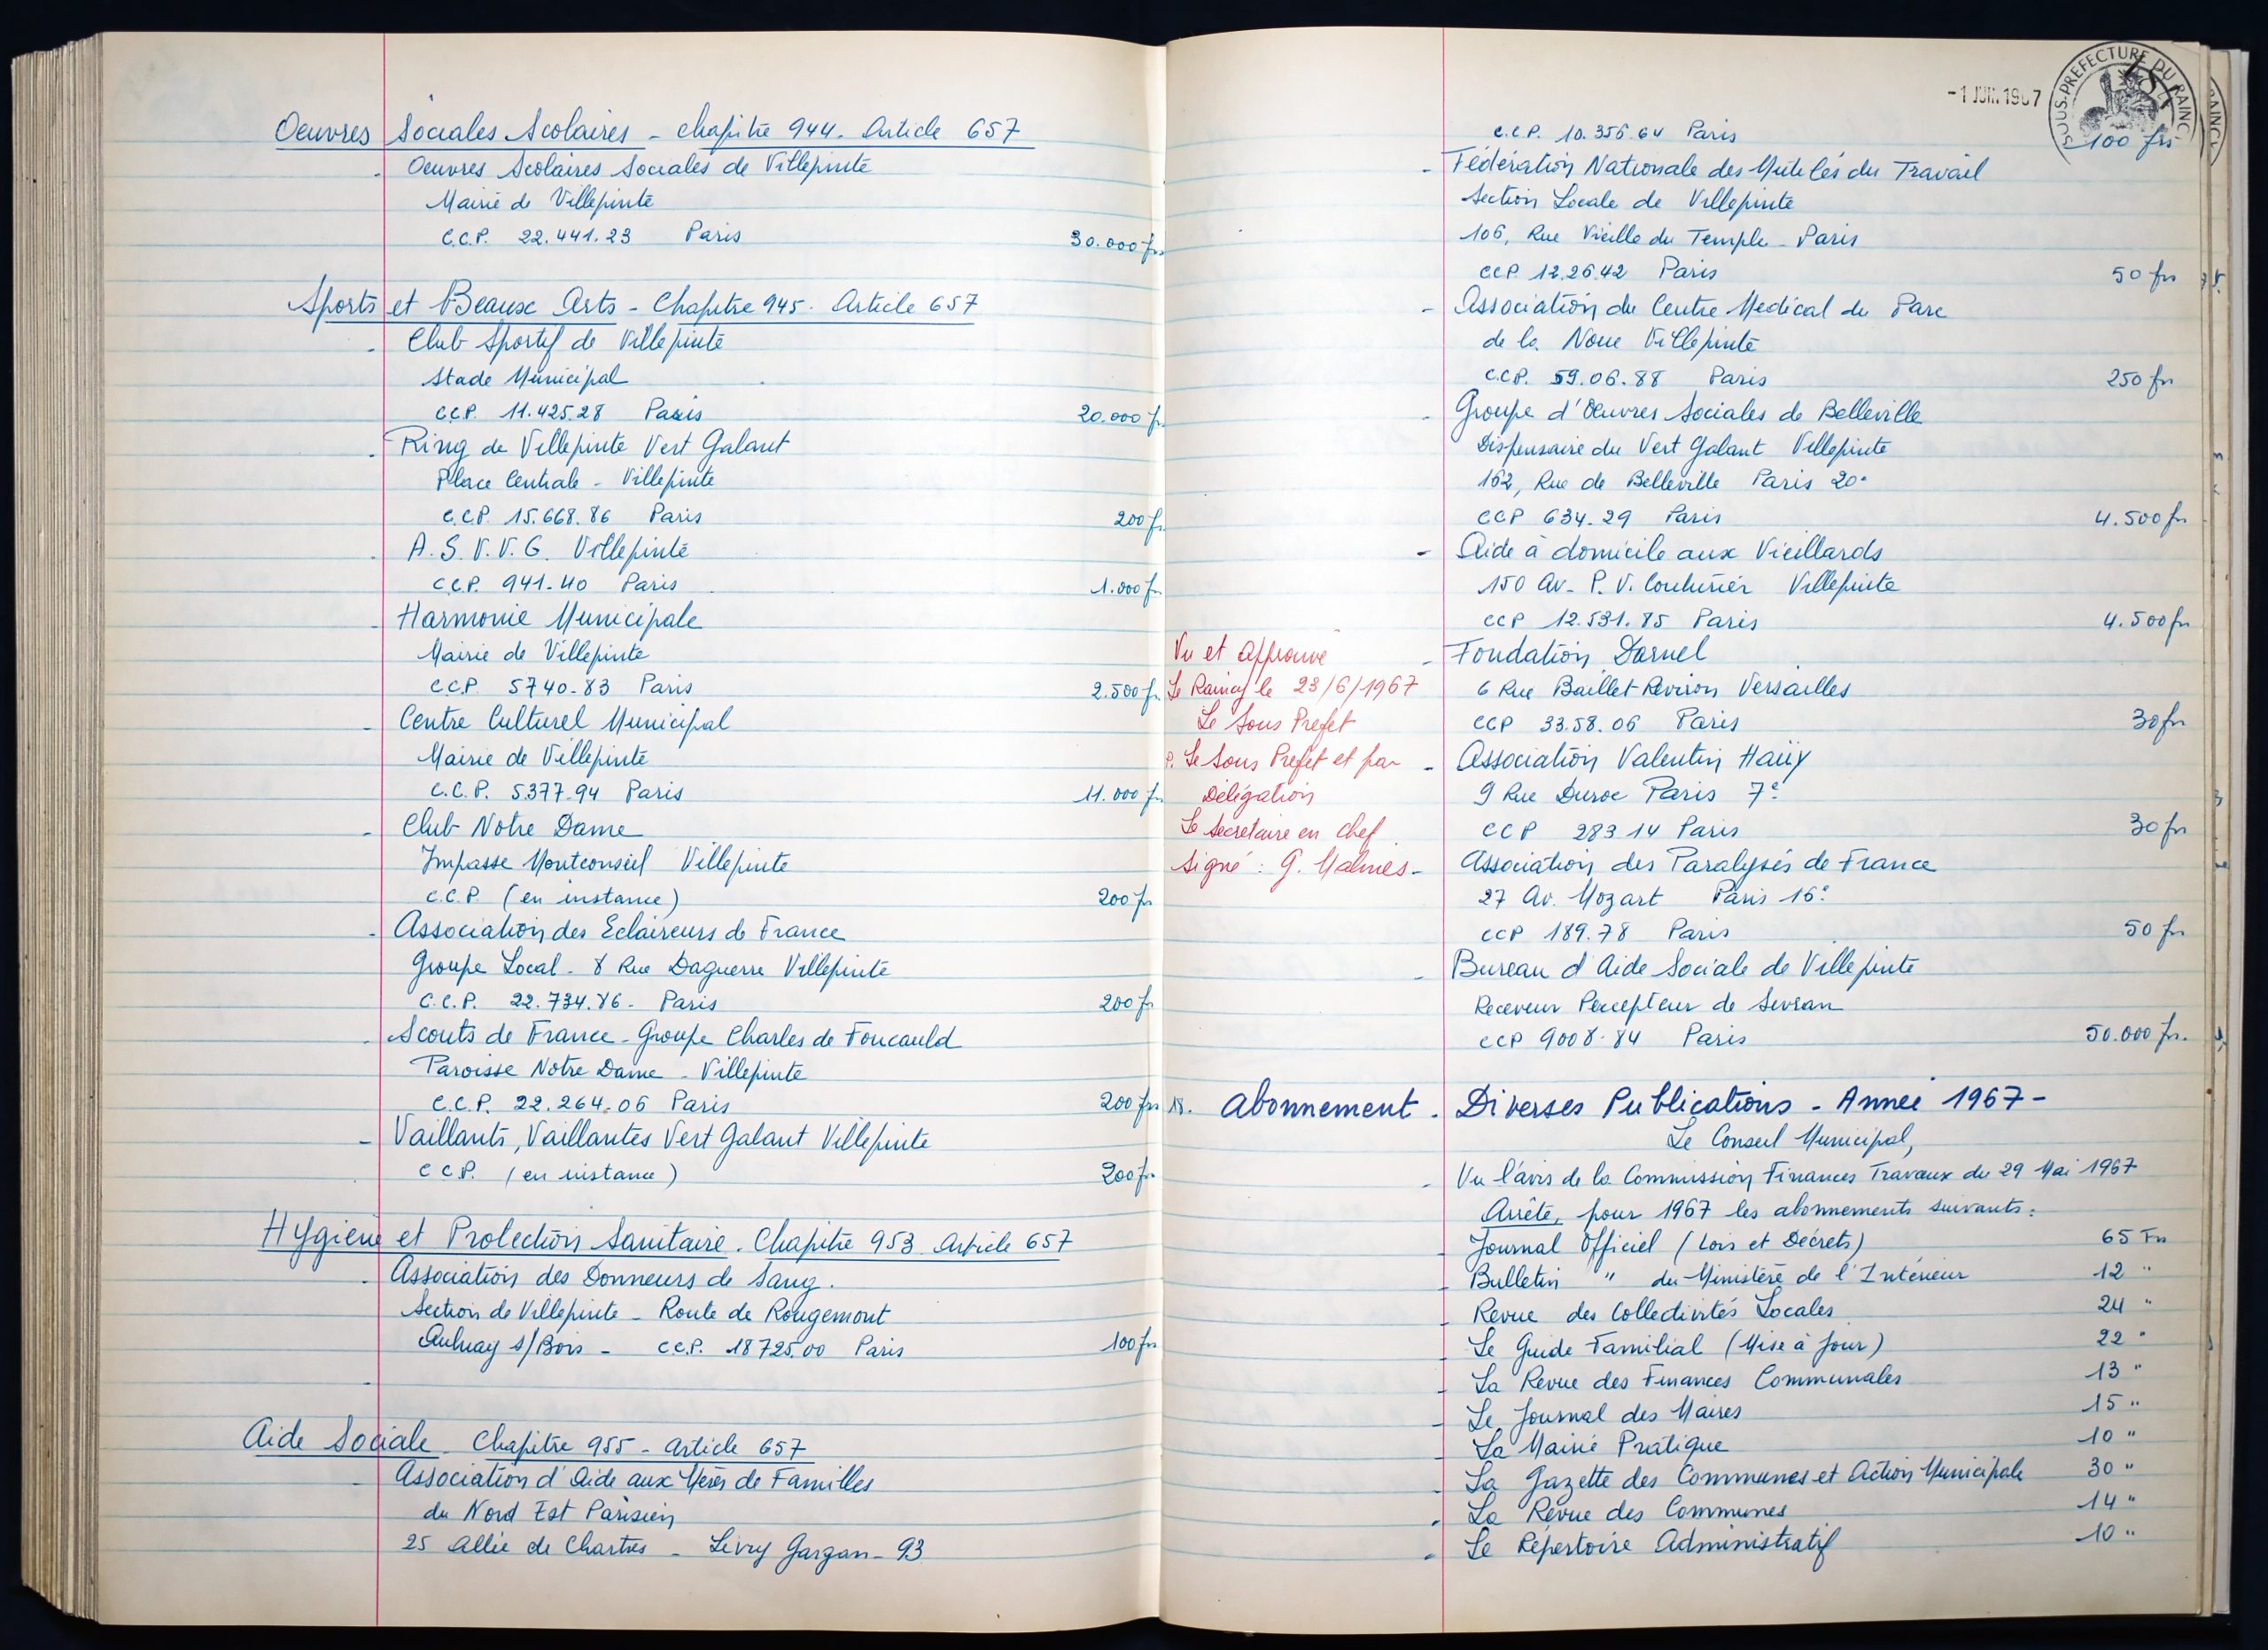 Oeuvres Sociales Scolaires - Chapitre 944. Article 657
. Oeuvres Scolaires Sociales de Villepinte
Mairie de Villepinte
C.C.P. 22.441.23 Paris 30.000 frs
Sports et Beaux Arts - Chapitre 945. Article 657
- Club Sportif de Villepinte
Stade Municipal
C.C.P. 11.425.28 Paris 20.000 fr.
. Ring de Villepinte Vert Galant
Place Centrale - Villepinte
C.C.P. 15.668.86 Paris 200 fr.
. A.S.V.V.G. Villepinte
C.C.P. 941-40 Paris 1.000 fr.
- Harmonie Municipale
Mairie de Villepinte
C.C.P. 5740-83 Paris 2.500 fr.
- Centre Culturel Municipal
Mairie de Villepinte
C.C.P. 5377-94 Paris 11.000 fr.
- Club Notre Dame
Impasse Montconseil Villepinte
C.C.P. (en instance) 200 fr
- Association des Eclaireurs de France
Groupe Local - 8 Rue Daguerre Villepinte
C.C.P. 22.734.86 - Paris 200 fr
. Scouts de France - Groupe Charles de Foucauld
Paroisse Notre Dame - Villepinte
C.C.P. 22.264.06 Paris 200 frs
- Vaillants, Vaillantes Vert Galant Villepinte
C C.P. (en instance) 200 fr.
Hygiène et Protection Sanitaire. Chapitre 953 Article 657
. Association des Donneurs de Sang.
Section de Villepinte - Route de Rougemont
Aulnay s/Bois - C.C.P. 18725.00 Paris 100 frs
Aide Sociale - Chapitre 955 - Article 657
- Association d'Aide aux Mères de Familles
du Nord Est Parisien
25 Allée de Chartres - Livry Gargan - 93
- 1 JUIN 1967
SOUS-PREFECTURE DU RAINCY
C.C.P. 10.356.64 Paris 100 frs
- Fédération Nationale des Mutilés du Travail
Section Locale de Villepinte
106, Rue Vieille du Temple - Paris
CCP. 12.26.42 Paris 50 frs
- Association du Centre Medical du Parc
de la Noue Villepinte
C.C.P. 59.06.88 Paris 250 frs
- Groupe d'Oeuvres Sociales de Belleville
Dispensaire du Vert Galant Villepinte
162, Rue de Belleville Paris 20e
CCP 634.29 Paris 4.500 frs
- Aide à domicile aux Vieillards
150 Av. P.V. Couturier Villepinte
CCP 12.531.85 Paris 4.500 frs
- Fondation Darnel
6 Rue Baillet Reviron Versailles
CCP 33.58.06 Paris 30 frs
- Association Valentin Haüy
9 Rue Duroc Paris 7e
CCP 283 14 Paris 30 frs
- Association des Paralysés de France
27 Av. Mozart Paris 16e
CCP 189.78 Paris 50 frs
- Bureau d'Aide Sociale de Villepinte
Receveur Percepteur de Sevran
CCP 9008.84 Paris 50.000 frs.
Vu et Approuvé
Le Raincy le 23/6/1967
Le Sous Préfet
P. Le Sous Préfet et par
Délégation
Le Secrétaire en Chef
Signé : G. Malmes-
18. Abonnement - Diverses Publications - Année 1967-
Le Conseil Municipal,
- Vu l'avis de la Commission Finances Travaux du 29 Mai 1967
Arrête, pour 1967 les abonnements suivants :
- Journal Officiel (Lois et Décrets) 65 Frs
- Bulletin " du Ministère de l'Intérieur 12 "
- Revue des Collectivités Locales 24 "
- Le Guide Familial (Mise à jour) 22 "
- La Revue des Finances Communales 13 "
- Le Journal des Maires 15 "
- La Mairie Pratique 10 "
- La Gazette des Communes et Action Municipale 30 "
- La Revue des Communes 14 "
- Le Répertoire Administratif 10 "